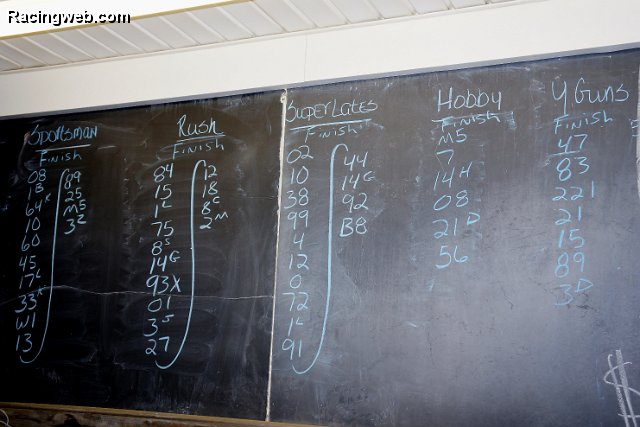 Racingweb.com
Sportsman
Finish
08
1B
64x
10
60
45
17L
33x
W1
13
89
25
M5
3Z
Rush
Finish
84
15
1L
75
8s
14G
93X
01
3S
27
12
18
8c
2M
SuperLates
Finish
02
10
38
99
4
12
0
72
1L
91
44
14G
92
B8
Hobby
Finish
M5
7
14H
08
21D
56
Y Guns
Finish
47
83
221
21
15
89
3D